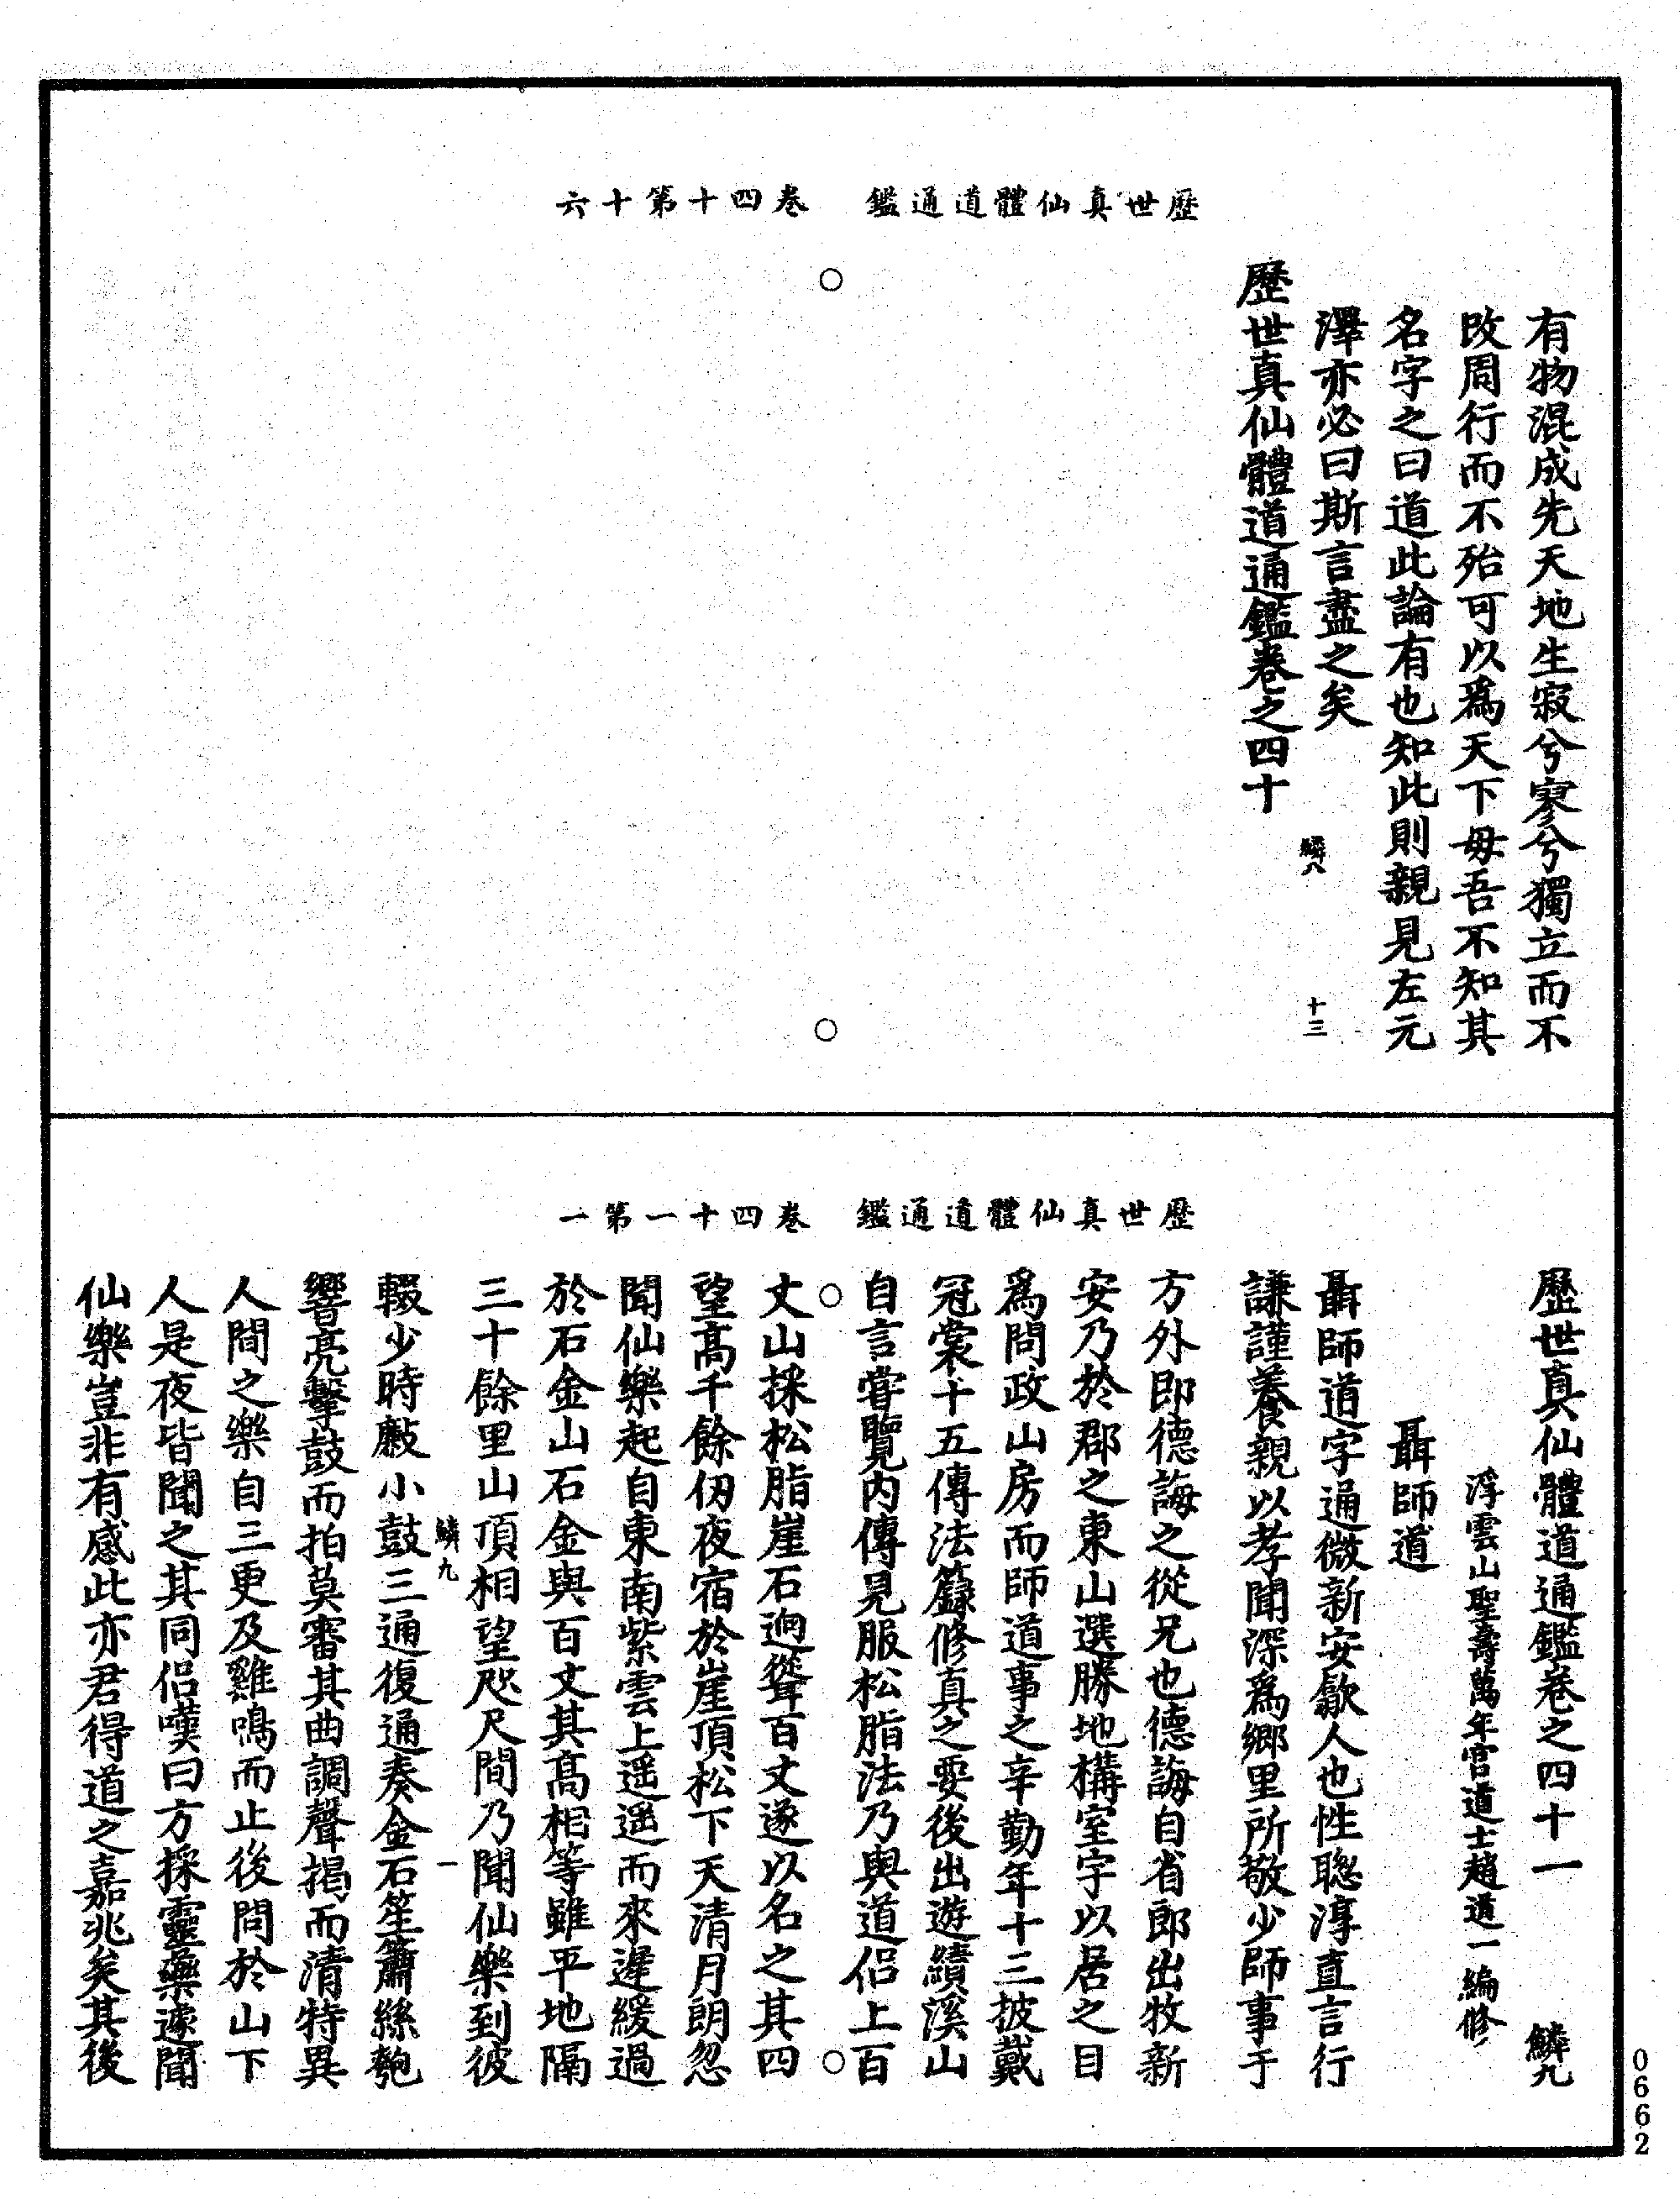 歷世真仙體道通鑑　卷四十第十六
有物混成先天地生寂兮寥兮獨立而不
改周行而不殆可以爲天下毋吾不知其
名字之曰道此論有也知此則親見左元
澤亦必曰斯言盡之矣
鱗八　十三
歷世真仙體道通鑑卷之四十
歷世真仙體道通鑑　卷四十一第一
歷世真仙體道通鑑卷之四十一　鱗九
浮雲山聖壽萬年宮道士趙道一編修
聶師道
聶師道字通微新安歙人也性聰淳直言行
謙謹養親以孝聞深爲鄉里所敬少師事于
方外即德誨之從兄也德誨自省郎出牧新
安乃於郡之東山選勝地構室宇以居之目
爲問政山房而師道事之辛勤年十三披戴
冠裳十五傳法籙修真之要後出遊績溪山
自言嘗覽內傳見服松脂法乃與道侣上百
丈山採松脂崖石迥聳百丈遂以名之其四
望高千餘仞夜宿於崖頂松下天清月朗忽
聞仙樂起自東南紫雲上遥遥而來遲緩過
於石金山石金與百丈其高相等雖平地隔
三十餘里山頂相望咫尺間乃聞仙樂到彼
鱗九　一
輟少時敲小鼓三通復通奏金石笙簫絲匏
響亮擊鼓而拍莫審其曲調聲揭而清特異
人間之樂自三更及雞鳴而止後問於山下
人是夜皆聞之其同侣嘆曰方採靈藥遽聞
仙樂豈非有感此亦君得道之嘉兆矣其後
0662